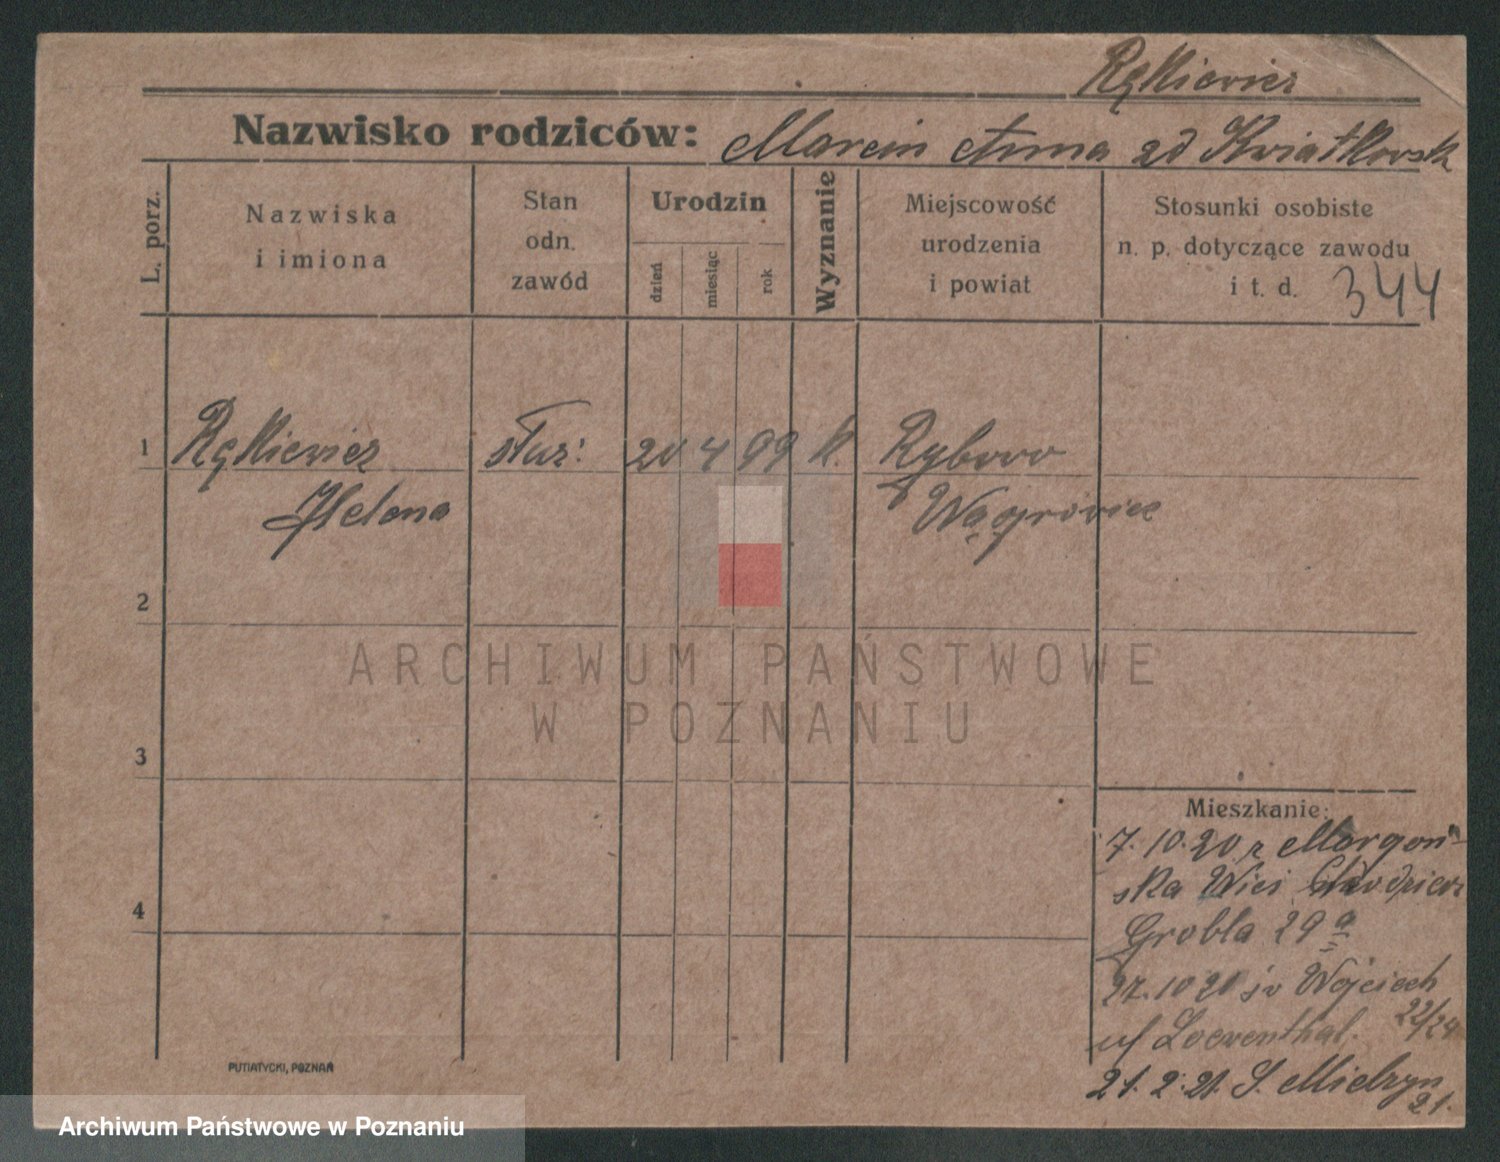 Rękiewicz
Nazwisko rodziców: Marcin Anna zd Kwiatkowsk
L. porz.
Nazwiska
i imiona
Stan
odn.
zawód
Urodzin
dzień
miesiąc
rok
Wyznanie
Miejscowość
urodzenia
i powiat
Stosunki osobiste
n. p. dotyczące zawodu
i t. d. 344
1 Rękiewicz służ: 20 4 99 k. Rybowo
Helena Wągrowiec
2
3
4
ARCHIWUM PAŃSTWOWE
W POZNANIU
Mieszkanie:
7.10.20 z Morgoń
ska Wieś Chodzież
Grobla 29 a
27.10 20 św Wojciech
22/24
u/ Loewenthal.
21.2.21. S. Mielżyn
21.
PUTIATYCKI, POZNAŃ
Archiwum Państwowe w Poznaniu